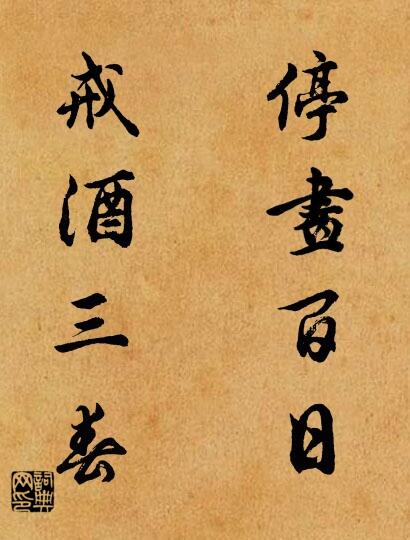 停畫百日
戒酒三春
詞典
网印